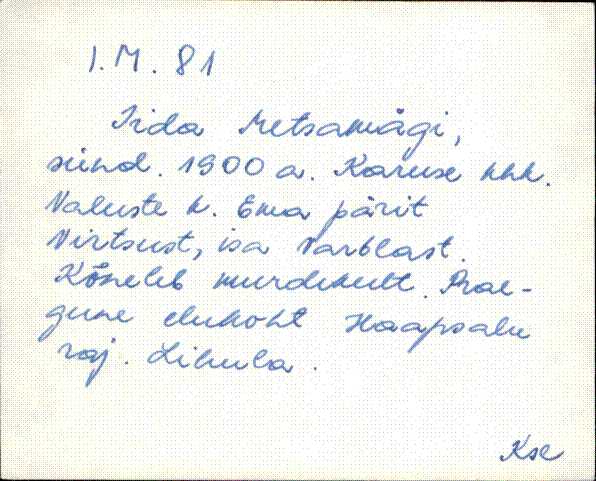 I.M. 81
Iida Metsamägi,
sünd. 1900 a. Karuse khk.
Valuste k. Ema pärit
Virtsust, isa Varblast.
Kõneleb murdekeelt. Prae-
gune elukoht Haapsalu
raj. Lihula.
Kse